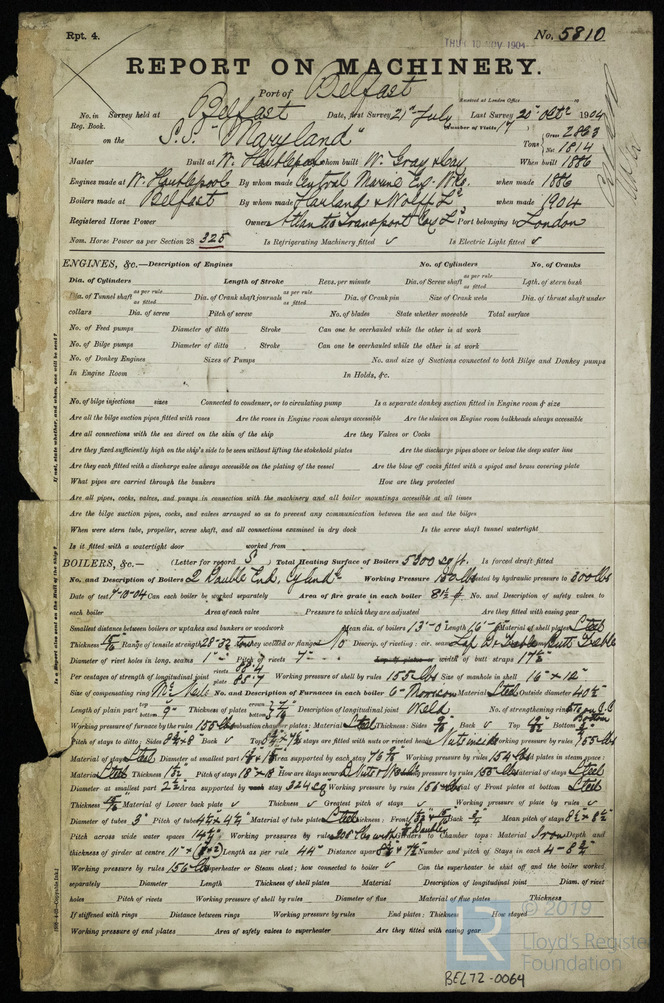 Rpt. 4.
THU 10 NOV 1904
No. 5810
REPORT ON MACHINERY.
Port of Belfast
Received at London Office
No. in Survey held at Belfast Date, first Survey 21st July Last Survey 20th Octr 1904
Reg. Book. (Number of Visits 17)
on the S.S. "Maryland" Tons Gross 2863 Net 1814
Master Built at W. Hartlepool By whom built W. Gray & Co. When built 1886
Engines made at W. Hartlepool By whom made Central Marine Eng. Wks. when made 1886
Boilers made at Belfast By whom made Harland & Wolff Ld when made 1904
Registered Horse Power Owners Atlantic Transport Coy Ld Port belonging to London
Nom. Horse Power as per Section 28 325 Is Refrigerating Machinery fitted Is Electric Light fitted
ENGINES, &c.—Description of Engines No. of Cylinders No. of Cranks
Dia. of Cylinders Length of Stroke Revs. per minute Dia. of Screw shaft as per rule as fitted Lgth. of stern bush
Dia. of Tunnel shaft as per rule as fitted Dia. of Crank shaft journals as per rule as fitted Dia. of Crank pin Size of Crank webs Dia. of thrust shaft under
collars Dia. of screw Pitch of screw No. of blades State whether moveable Total surface
No. of Feed pumps Diameter of ditto Stroke Can one be overhauled while the other is at work
No. of Bilge pumps Diameter of ditto Stroke Can one be overhauled while the other is at work
No. of Donkey Engines Sizes of Pumps No. and size of Suctions connected to both Bilge and Donkey pumps
In Engine Room In Holds, &c.
No. of bilge injections sizes Connected to condenser, or to circulating pump Is a separate donkey suction fitted in Engine room & size
Are all the bilge suction pipes fitted with roses Are the roses in Engine room always accessible Are the sluices on Engine room bulkheads always accessible
Are all connections with the sea direct on the skin of the ship Are they Valves or Cocks
Are they fixed sufficiently high on the ship's side to be seen without lifting the stokehold plates Are the discharge pipes above or below the deep water line
Are they each fitted with a discharge valve always accessible on the plating of the vessel Are the blow off cocks fitted with a spigot and brass covering plate
What pipes are carried through the bunkers How are they protected
Are all pipes, cocks, valves, and pumps in connection with the machinery and all boiler mountings accessible at all times
Are the bilge suction pipes, cocks, and valves arranged so as to prevent any communication between the sea and the bilges
When were stern tube, propeller, screw shaft, and all connections examined in dry dock Is the screw shaft tunnel watertight
Is it fitted with a watertight door worked from
BOILERS, &c.— (Letter for record S) Total Heating Surface of Boilers 5300 sq ft. Is forced draft fitted
No. and Description of Boilers 2 Double End. Cylindl Working Pressure 150 lbs Tested by hydraulic pressure to 300 lbs
Date of test 7-10-04 Can each boiler be worked separately Area of fire grate in each boiler No. and Description of safety valves to
each boiler Area of each valve Pressure to which they are adjusted Are they fitted with easing gear
Smallest distance between boilers or uptakes and bunkers or woodwork Mean dia. of boilers 13'-0" Length 16'- Material of shell plates Steel
Thickness 15/16 Range of tensile strength 28-32 Are they welded or flanged No Descrip. of riveting: cir. seams Lap Dr Treble long. seams Butt Treble
Diameter of rivet holes in long. seams 1" Pitch of rivets 7" width of butt straps 17½"
Per centages of strength of longitudinal joint rivets 88.4 plate 85.7 Working pressure of shell by rules 155 lbs Size of manhole in shell 16" x 12"
Size of compensating ring McNeils No. and Description of Furnaces in each boiler 6 - Morrison Material Steel Outside diameter 40½"
Length of plain part top bottom 9" Thickness of plates crown bottom Description of longitudinal joint Weld No. of strengthening rings
Working pressure of furnace by the rules 155 lbs Combustion chamber plates: Material Steel Thickness: Sides 9/16 Back Top Bottom
Pitch of stays to ditto: Sides Back Top If stays are fitted with nuts or riveted heads Nuts inside Working pressure by rules 155 lbs
Material of stays Steel Diameter at smallest part Area supported by each stay Working pressure by rules 154 lbs End plates in steam space:
Material Steel Thickness Pitch of stays 18" x 18" How are stays secured D Nuts & Washers Working pressure by rules Material of stays Steel
Diameter at smallest part 2½" Area supported by each stay 324 Working pressure by rules 156 lbs Material of Front plates at bottom Steel
Thickness 15/16 Material of Lower back plate Thickness Greatest pitch of stays Working pressure of plate by rules
Diameter of tubes 3" Pitch of tubes 4¼" x 4½" Material of tube plates Steel Thickness: Front Back Mean pitch of stays
Pitch across wide water spaces 14½" Working pressures by rules Girders to Chamber tops: Material Iron Depth and
thickness of girder at centre 11" x Length as per rule 44" Distance apart Number and pitch of Stays in each 4 - 8¾"
Working pressure by rules 156 lbs Superheater or Steam chest; how connected to boiler Can the superheater be shut off and the boiler worked
separately Diameter Length Thickness of shell plates Material Description of longitudinal joint Diam. of rivet
holes Pitch of rivets Working pressure of shell by rules Diameter of flue Material of flue plates Thickness
If stiffened with rings Distance between rings Working pressure by rules End plates: Thickness How stayed
Working pressure of end plates Area of safety valves to superheater Are they fitted with easing gear
LR © 2019
Lloyd's Register
Foundation
BEL72-0064